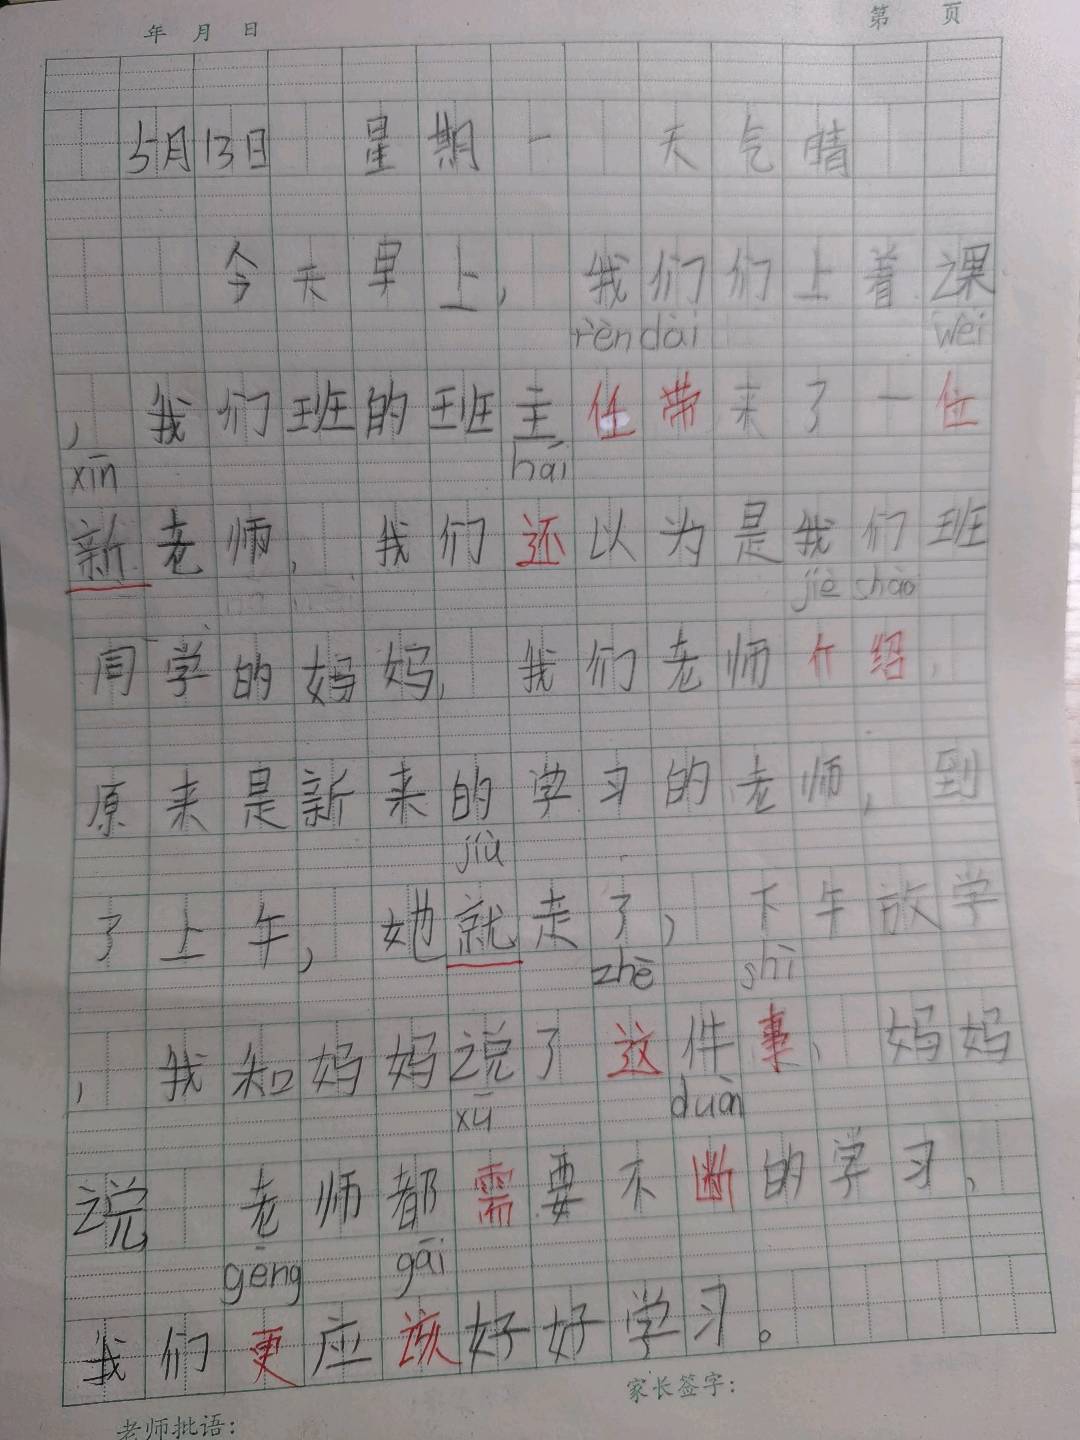 年 月 日 第 页
5月13日 星期一 天气晴
今天早上，我们们上着课
rèn dài wèi
，我们班的班主任带来了一位
xīn hái
新老师，我们还以为是我们班
jiè shào
同学的妈妈，我们老师介绍，
原来是新来的学习的老师，到
jiù
了上午，她就走了，下午放学
zhè shì
，我和妈妈说了这件事、妈妈
xū duàn
说 老师都需要不断的学习、
gēng gāi
我们更应该好好学习。
家长签字：
老师批语：